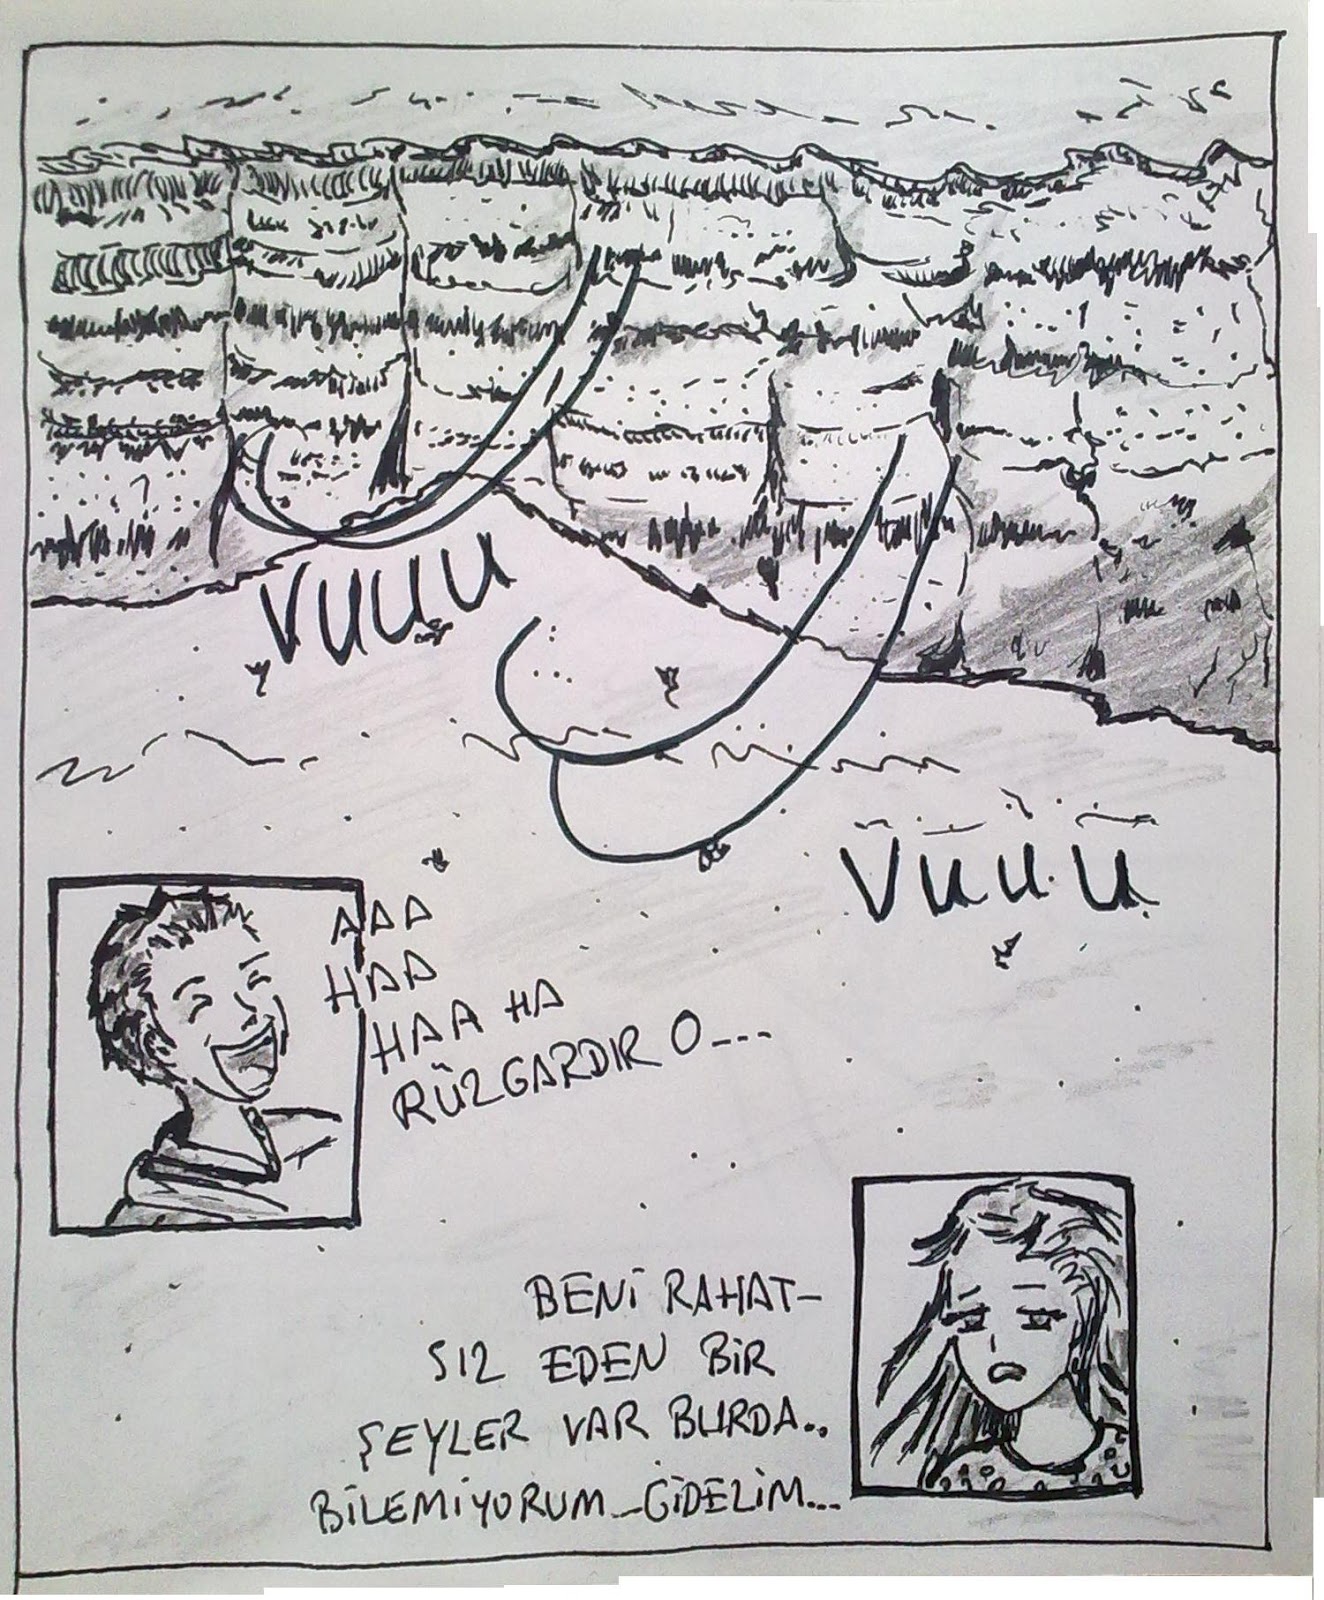 VUUU
VUUU
AAA
HAA
HAA HA
RÜZGARDIR O---
BENİ RAHAT-
SIZ EDEN BİR
ŞEYLER VAR BURDA..
BİLEMİYORUM...GİDELİM...